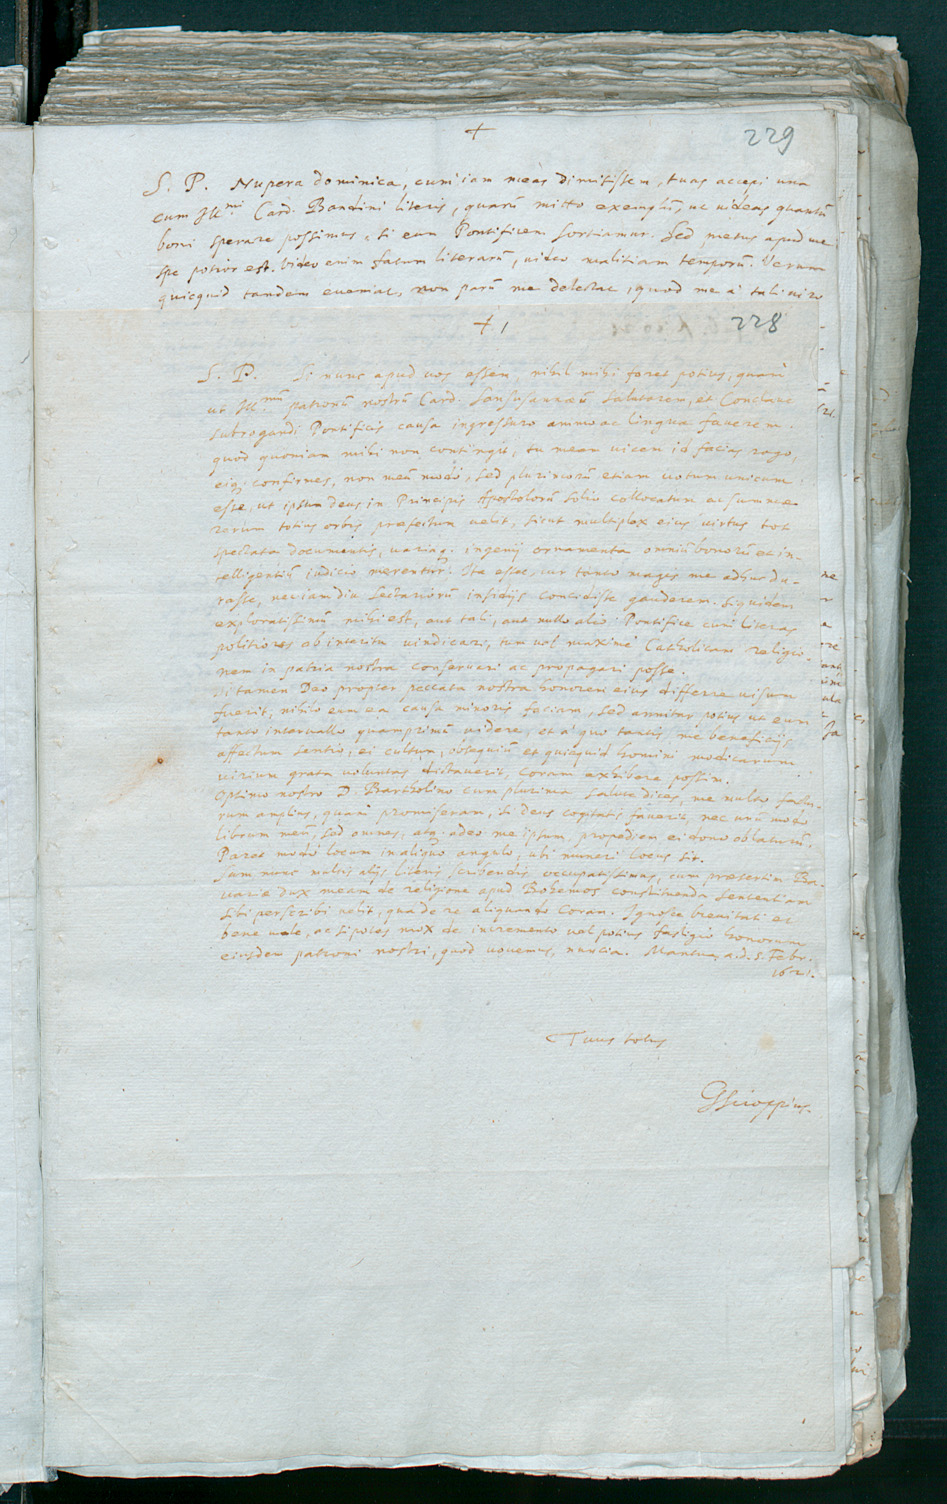 +
229
S. P. Nupera dominica, cum iam meas dimisissem, tuas accepi una
cum Ill.mi Card. Bandini literis, quarū mitto exemplū, ut uideas quantū
boni sperare possimus, si eum Pontificem sortiamur. Sed metus apud me
spe potior est. Video enim fatum literarū, uideo malitiam temporū. Verum
quicquid tandem eueniat, non parū me delectat, quod me à tali uiro
+ 1
228
S. P. Si nunc apud uos essem, nihil mihi foret potius, quàm
ut Ill.mum patronū nostrū Card. Sansusannæū salutarem, et Conclaue
subrogandi Pontificis causa ingressuro animo ac lingua fauerem.
quod quoniam mihi non contingit, tu meam uicem id facias rogo,
eiq; confirmes, non meū modò, sed plurimorū etiam uotum unicum
esse, ut ipsum deus in Principis Apostolorū solio collocatum ac summæ
rerum totius orbis præfectum uelit, sicut multiplex eius uirtus tot
spectata documentis, uariaq. ingenij ornamenta omniū bonorū et in-
telligentiū iudicio merentur. Ita esset, cur tantò magis me adhuc du-
rasse, nec iam diu Sectariorū insidijs concidisse gauderem. Siquidem
exploratissimū mihi est, aut tali, aut nullo alio Pontifice cum literas
politiores ab interitu uindicari, tum uel maximè Catholicam religio-
nem in patria nostra conseruari ac propagari posse.
Si tamen Deo propter peccata nostra honorem eius differre uisum
fuerit, nihilo eum ea causa minoris faciam, sed annitar potius ut eum
tanto interuallo quamprimū uidere, et à quo tantis me beneficijs
affectum sentio, ei cultum, obsequiū et quicquid homini modicarum
uirium grata uoluntas dictauerit, coram exhibere possim.
Optimo nostro D Bartholino cum plurima salute dices, me multo factu-
rum amplius, quàm promiseram, si Deus cogitatis fauerit, nec unū modò
librum meū, sed omnes, atq. adeo me ipsum, propediem ei dono oblaturū.
Paret modò locum in aliquo angulo, ubi muneri locus sit.
Sum nunc multis alijs literis scribendis occupatissimus, cum præsertim Ba-
uariæ dux meam de religione apud Bohemos constituenda sententiam
sibi perscribi uelit, qua de re aliquando coram. Ignosce breuitati et
bene uale, ac si potes mox de incremento uel potius fastigio honorum
eiusdem patroni nostri, quod uouemus, nuncia. Mantua, a.d. 5. Febr.
1621.
Tuus totus
GScioppius.